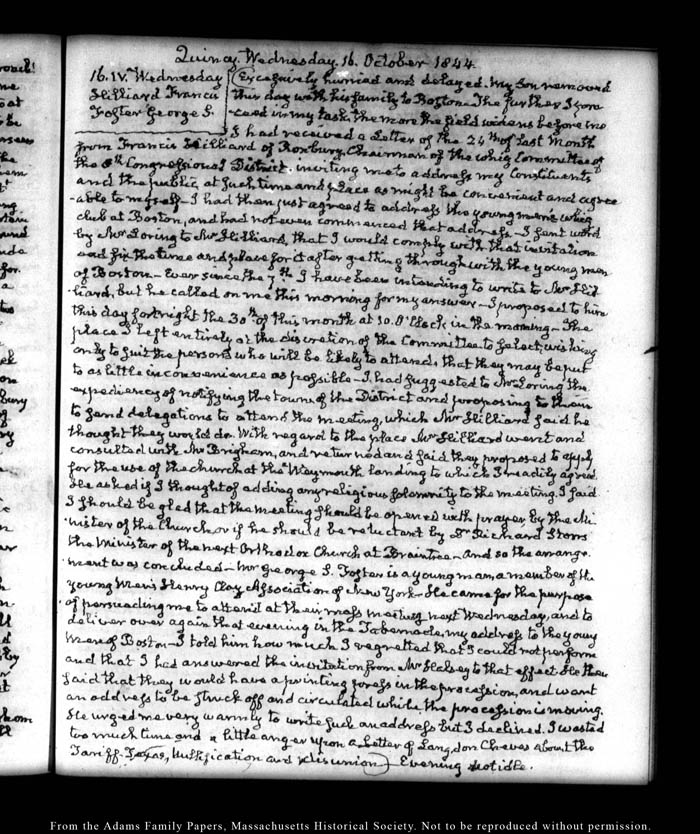 Quincy. Wednesday. 16. October 1844.
16. IV. Wednesday
Hilliard Francis
Foster George S.
Excessively humid and delayed. My Son removed
this day with his family to Boston. The further I pro-
-ceed in my task, the more the field widens before me
I had received a Letter of the 24th of last Month
from Francis Hilliard of Roxbury, Chairman of the Whig Committee of
the 8th Congressional District, inviting me to address my Constituents
and the public at such time and place as might be convenient and agree
-able to myself. I had then just agreed to address the young men's whig
club at Boston, and had not even commenced that address. I sent word
by Mr Loring to Mr Hilliard, that I would comply with that invitation
and fix the time and place for it after getting through with the young men
of Boston. Ever since the 7th I have been intending to write to Mr Hil-
-liard, but he called on me this morning for my answer. I proposed to him
this day fortnight the 30th of this month at 10. O'Clock in the morning. The
place I left entirely at the discretion of the Committee to select, wishing
only to suit the persons who will be likely to attend, that they may be put
to as little inconvenience as possible. I had suggested to Mr Loring the
expediency of notifying the towns of the District and proposing to them
to send delegations to attend the meeting, which Mr Hilliard said he
thought they would do. With regard to the place Mr Hilliard went and
consulted with Mr Brigham, and returned and said they proposed to apply
for the use of the church at the Weymouth landing to which I readily agreed.
He asked if I thought of adding any religious solemnity to the meeting. I said
I should be glad that the meeting should be opened with prayer by the Mi-
-nister of the Church, or if he should be reluctant by Dr Richard Storrs
the Minister of the next Orthodox Church at Braintree. And so the arrange-
-ment was concluded. Mr George S. Foster is a young man, a member of the
Young Men's Henry Clay Association of New York. He came for the purpose
of persuading me to attend at their mass meeting next Wednesday, and to
deliver over again that evening in the Tabernacle, my address to the young
Men of Boston. I told him how much I regretted that I could not perform
and that I had answered the invitation from Mr Halsey to that effect. He then
said that they would have a printing press in the procession, and want
an address to be struck off and circulated while the procession is moving.
He urged me very warmly to write such an address but I declined. I wasted
too much time and a little anger upon a Letter of Langdon Cheves about the
Tariff. Texas, Nullification and disunion. Evening not idle.
From the Adams Family Papers, Massachusetts Historical Society. Not to be reproduced without permission.